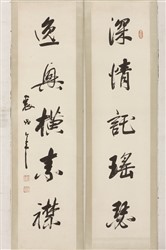 深情託瑤瑟
逸興橫素襟